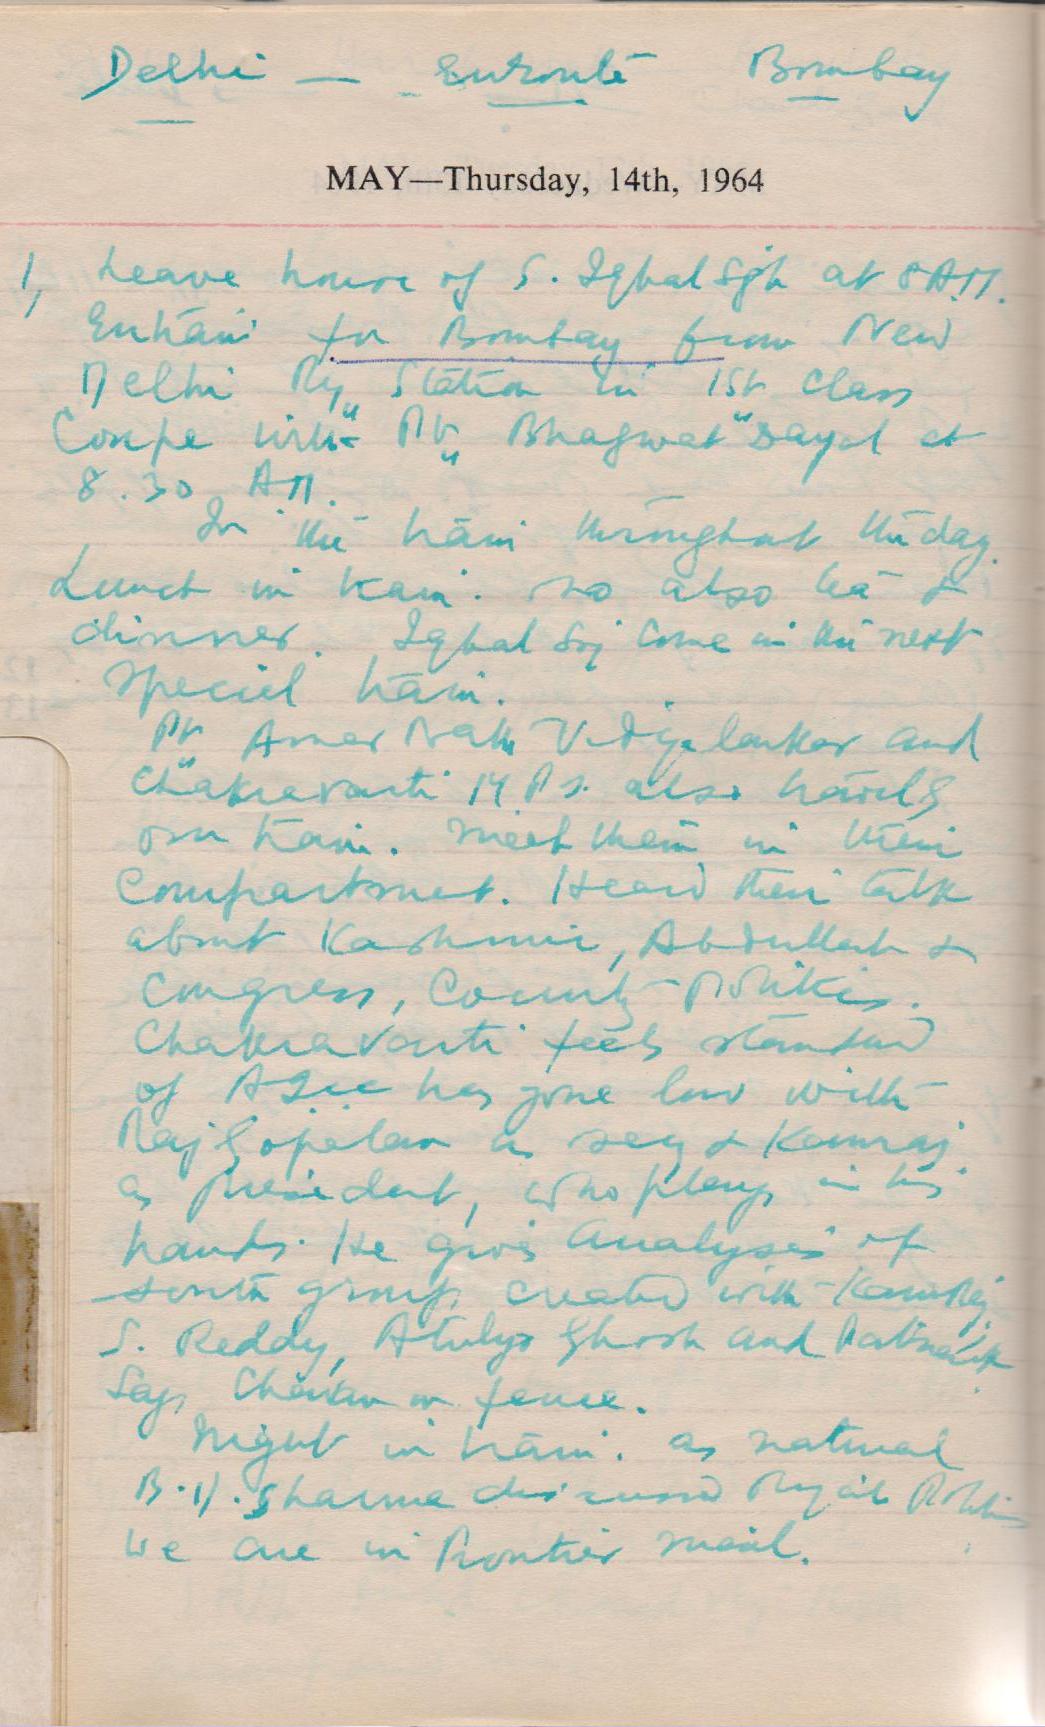 Delhi — Enroute Bombay
MAY—Thursday, 14th, 1964
1, Leave house of S. Iqbal Sgh at 8 A.M.
Entrain for Bombay from New
Delhi Rly Station in 1st Class
Coupe with Pt. Bhagwat Dayal at
8.30 AM.
In the train throughout the day.
Lunch in train. so also tea &
dinner. Iqbal Sgh come in the next
special train.
Pt Amar Nath Vidyalankar and
Chakravarti M.Ps. also travels
on train. Meet them in their
Compartment. Heard their talk
about Kashmir, Abdullah &
Congress, County Politics.
Chakravarti feels standard
of AICC has gone low with
Raj Gopalan as secy & Kamraj
as president, who plays in his
hands. He gives analyses of
south group created with Kamraj,
S. Reddy, Atulya Ghosh and Patnaik
Says Chavan on fence.
Night in train. as natural
B.D. Sharma discussed Politics
We are in Frontier Mail.